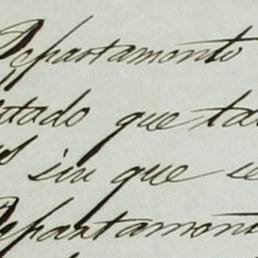 Departamento
itado que ta
sin que se
Departamento